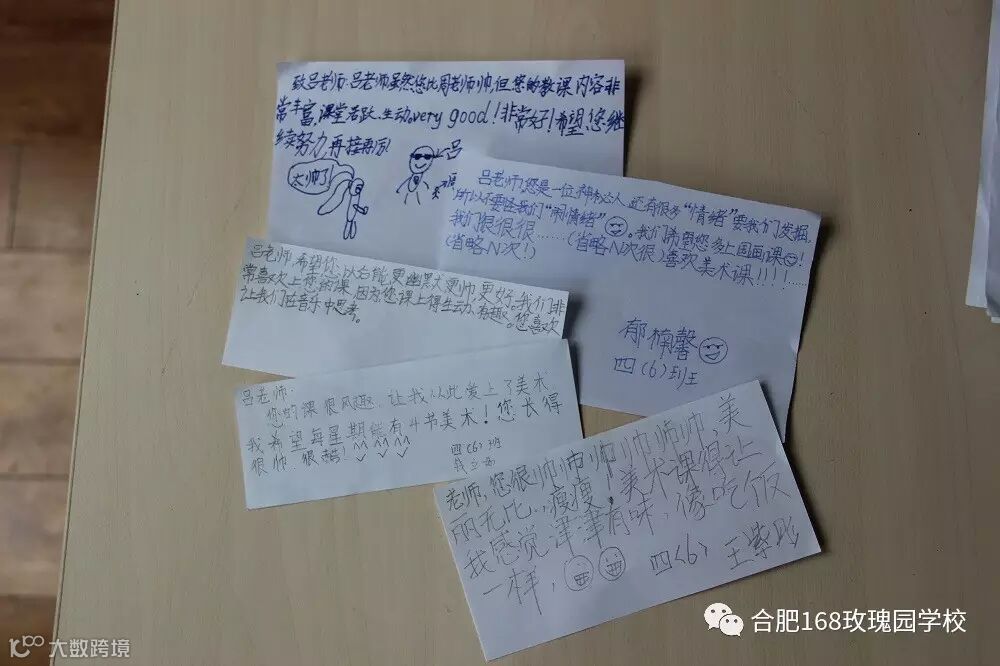 致吕老师:吕老师虽然您比周老师帅,但您的教课内容非
常丰富,课堂活跃、生动。very good!非常好!希望您继
续努力,再接再厉!
太帅了
吕
吕老师,您是一位神秘人,还有很多“情绪”要我们发掘,
所以不要怪我们“闹情绪”。我们希望您多上国画课!
我们很很很……(省略N次很)喜欢美术课!!!!……
(省略N次!)
郁楠馨
四(6)班
吕老师,希望你以后能更幽默、更帅、更好。我们非
常喜欢上您的课,因为您课上得生动、有趣。您喜欢
让我们在音乐中思考。
吕老师:
您的课很风趣,让我从此爱上了美术,
我希望每星期能有4节美术!您长得
很帅,很酷!
四(6)班
老师,您很帅帅帅帅帅帅帅,美
丽无比,瘦瘦,美术课很让
我感觉津津有味,像吃饭
一样,
四(6) 王紫彤
合肥168玫瑰园学校
大数跨境